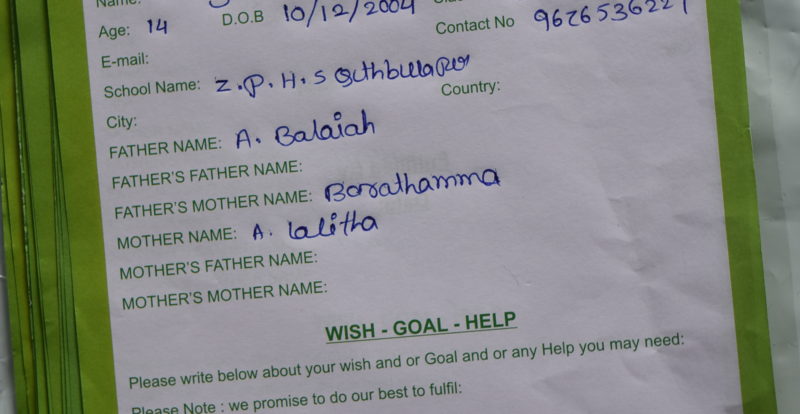 Name:
Age: 14 D.O.B 10/12/2004
Contact No
E-mail:
School Name: Z.P.H.S
City: Country:
FATHER NAME: A. Balaiah
FATHER'S FATHER NAME:
FATHER'S MOTHER NAME:
MOTHER NAME: A. lalitha
MOTHER'S FATHER NAME:
MOTHER'S MOTHER NAME:
WISH - GOAL - HELP
Please write below about your wish and or Goal and or any Help you may need:
Please Note : we promise to do our best to fulfil: